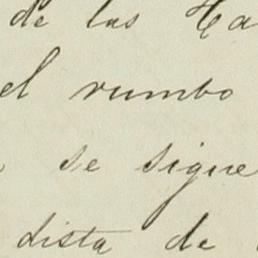 de las Ha
el rumbo
se sigue
dista de